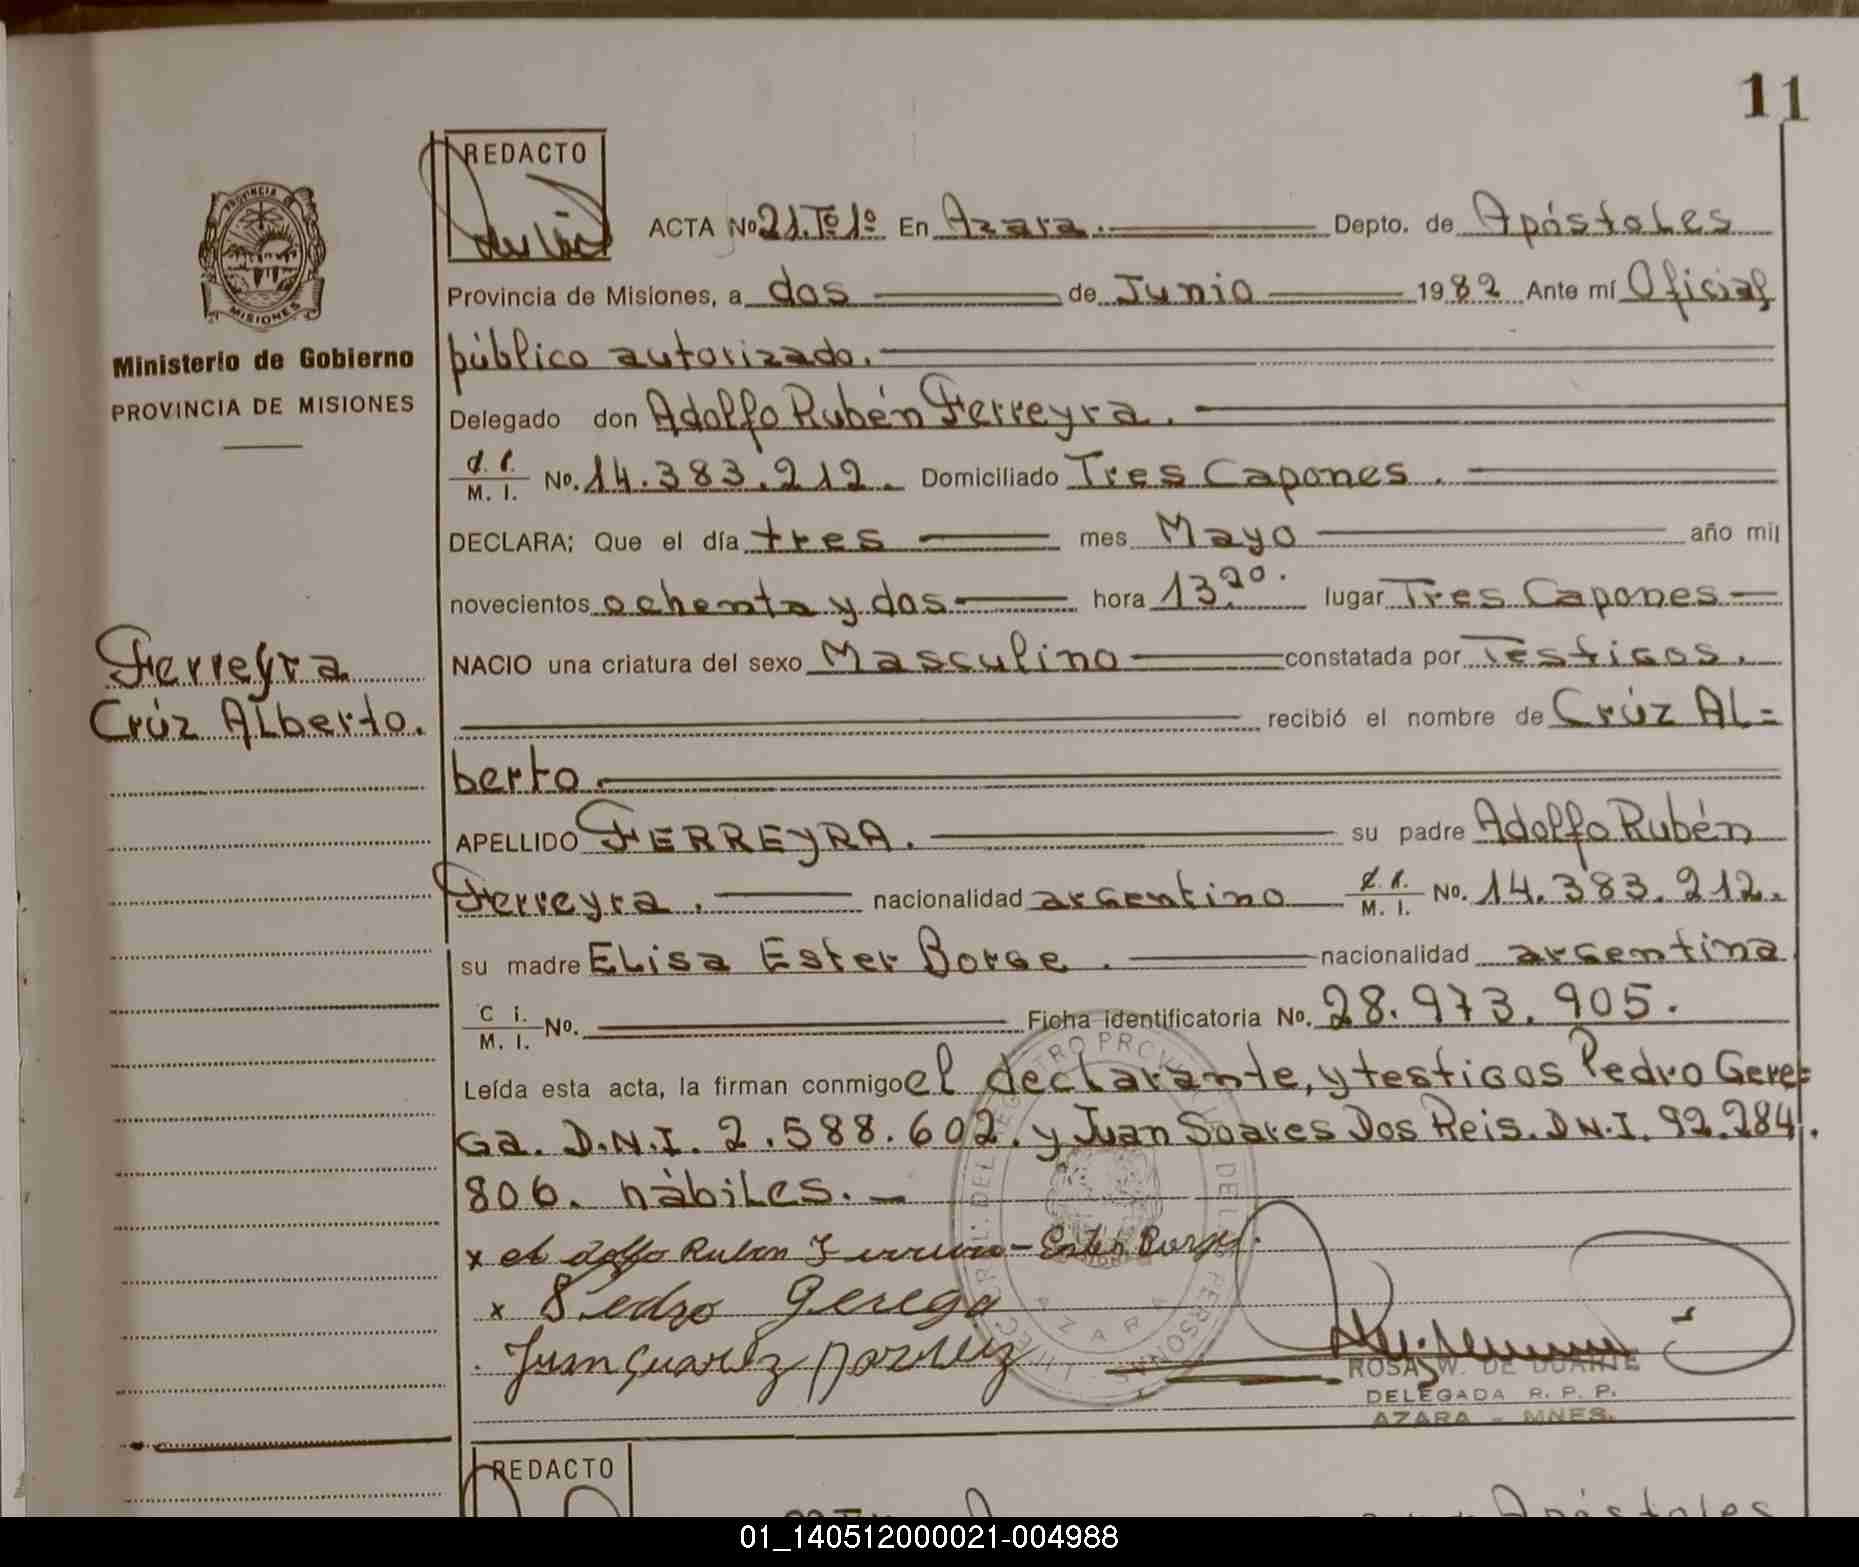 11
REDACTO
ACTA No 21. Tº 1º En Azara. Depto. de Apóstoles
PROVINCIA DE
MISIONES
Provincia de Misiones, a dos de Junio 1982 Ante mí Oficial
Ministerio de Gobierno
público autorizado.
PROVINCIA DE MISIONES
Delegado don Adolfo Rubén Ferreyra.
d. i. / M. I. No. 14.383.212. Domiciliado Tres Capones.
DECLARA; Que el día tres mes Mayo año mil
novecientos ochenta y dos hora 13.20. lugar Tres Capones
Ferreyra
NACIO una criatura del sexo Masculino constatada por Testigos.
Crúz Alberto.
recibió el nombre de Crúz Al=
berto.
APELLIDO FERREYRA. su padre Adolfo Rubén
Ferreyra. nacionalidad argentino M. I. No. 14.383.212.
su madre Elisa Ester Borge. nacionalidad argentina
C i. / M. I. No. Ficha identificatoria No. 28.973.905.
Leída esta acta, la firman conmigo el declarante, y testigos Pedro Gere=
ga. D.N.I. 2.588.602. y Juan Soares Dos Reis. D.N.I. 92.284.
806. hàbiles.
x Adolfo Ruben Ester
x Pedro Gerega
Juan
AZARA
ROSA W. DE DUARTE
DELEGADA R. P. P.
AZARA - MNES.
REDACTO
Apóstoles
01_140512000021-004988